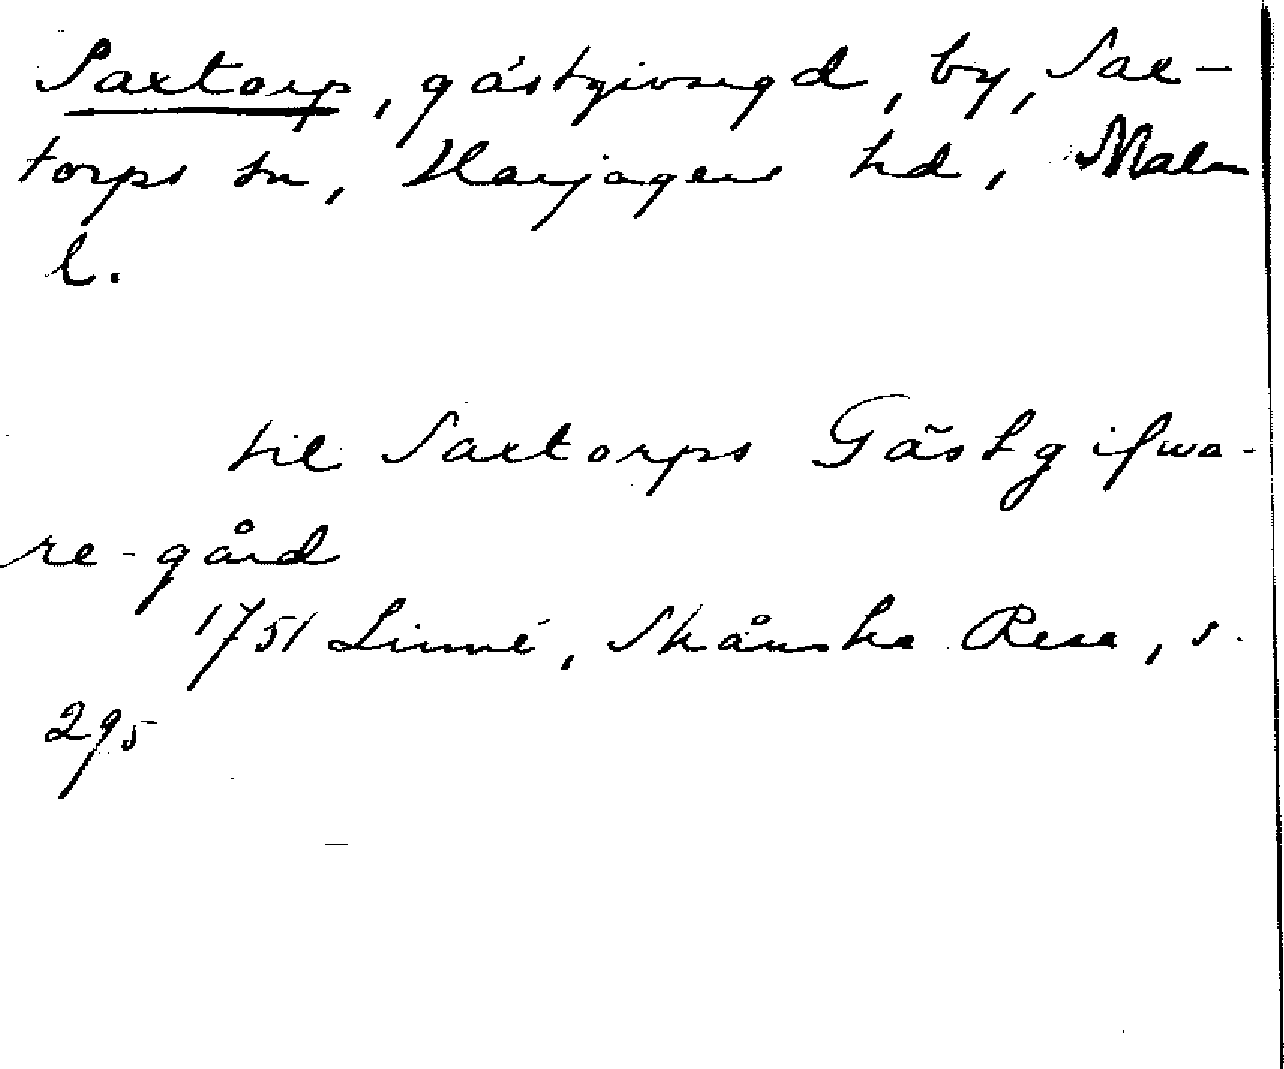 Saxtorp, gästgivaregd, by, Sax-
torps sn, Harjagers hd, Malm
l.
til Saxtorps Gästgifwa-
re-gård
1751 Linné, Skånska Resa, s.
295